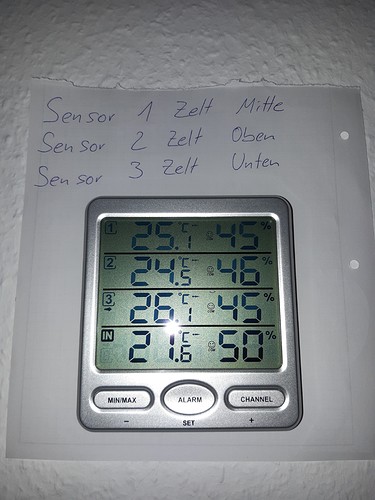 Sensor 1 Zelt Mitte
Sensor 2 Zelt Oben
Sensor 3 Zelt Unten
1 25.1 °C 45%
2 24.5 °C 46%
3 26.1 °C 45%
IN 21.6 °C 50%
MIN/MAX ALARM CHANNEL
− SET +